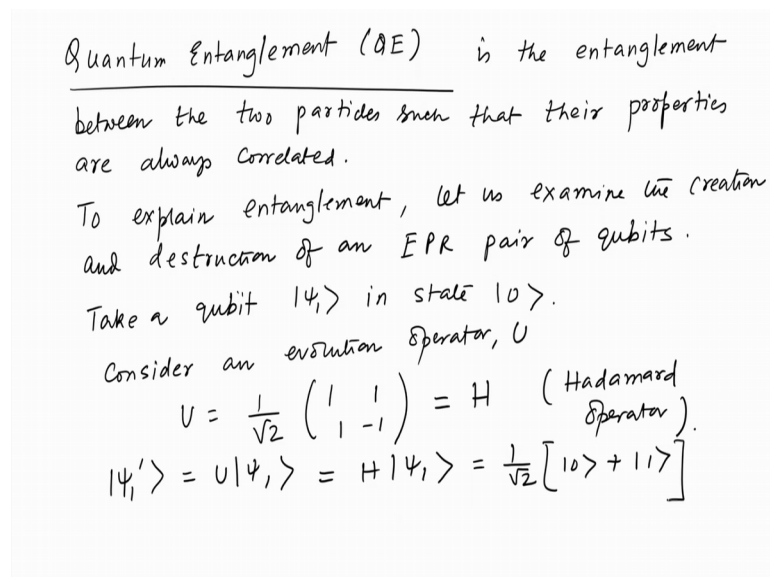 Quantum Entanglement (QE) is the entanglement
between the two particles such that their properties
are always correlated.
To explain entanglement, let us examine the creation
and destruction of an EPR pair of qubits.
Take a qubit |ψ₁> in state |0>.
Consider an evolution operator, U
U = 1/√2 (1 1 1 -1) = H (Hadamard operator).
|ψ₁'> = U|ψ₁> = H|ψ₁> = 1/√2 [|0> + |1>]